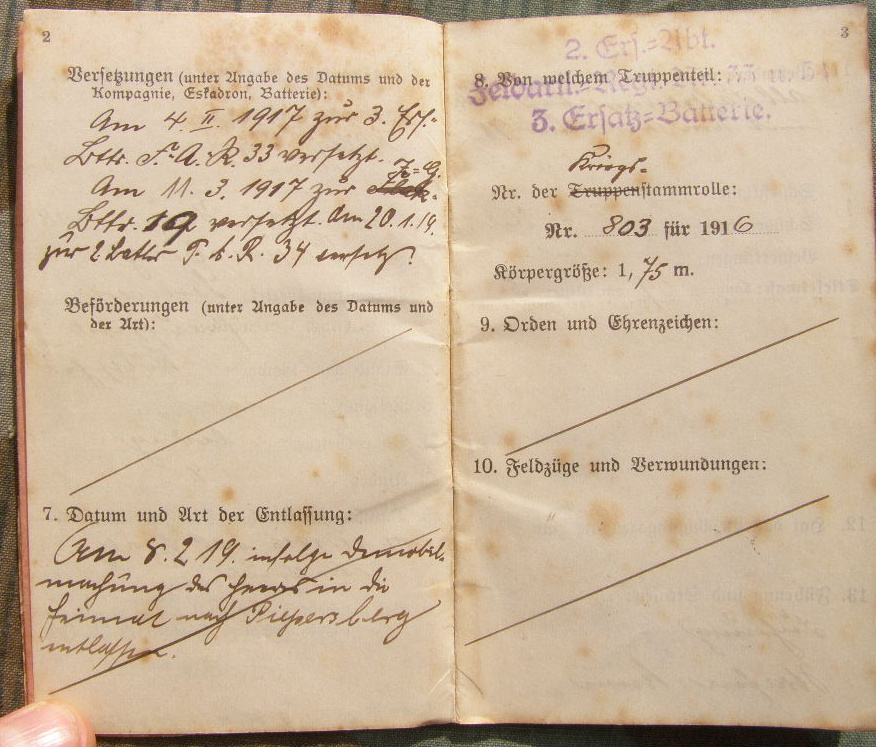 2
Versetzungen (unter Angabe des Datums und der
Kompagnie, Eskadron, Batterie):
Am 4. II. 1917 zur 3. Ers.-
Bttr. F. A. R. 33 versetzt.
Am 11. 3. 1917 zur
Bttr. versetzt. Am 20.1.19.
zur 2 F. A. R. 34
Beförderungen (unter Angabe des Datums und
der Art):
7. Datum und Art der Entlassung:
Am 8. 2 19. infolge Demobil-
machung des Heeres in die
Heimat nach Piepersberg
entlassen.
3
2. Ers.=Abt.
8. Von welchem Truppenteil:
Feldart.=Regt.
3. Ersatz=Batterie.
Kriegs-
Nr. der Truppenstammrolle:
Nr. 803 für 1916
Körpergröße: 1,75 m.
9. Orden und Ehrenzeichen:
10. Feldzüge und Verwundungen: